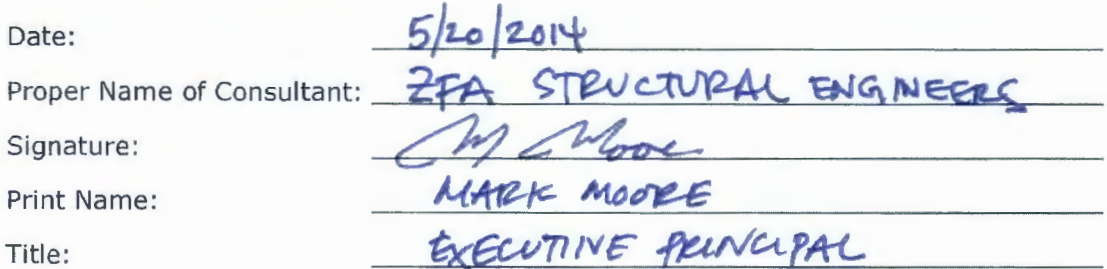 Date: 5/20/2014
Proper Name of Consultant: ZFA STRUCTURAL ENGINEERS
Signature: M Moore
Print Name: MARK MOORE
Title: EXECUTIVE PRINCIPAL